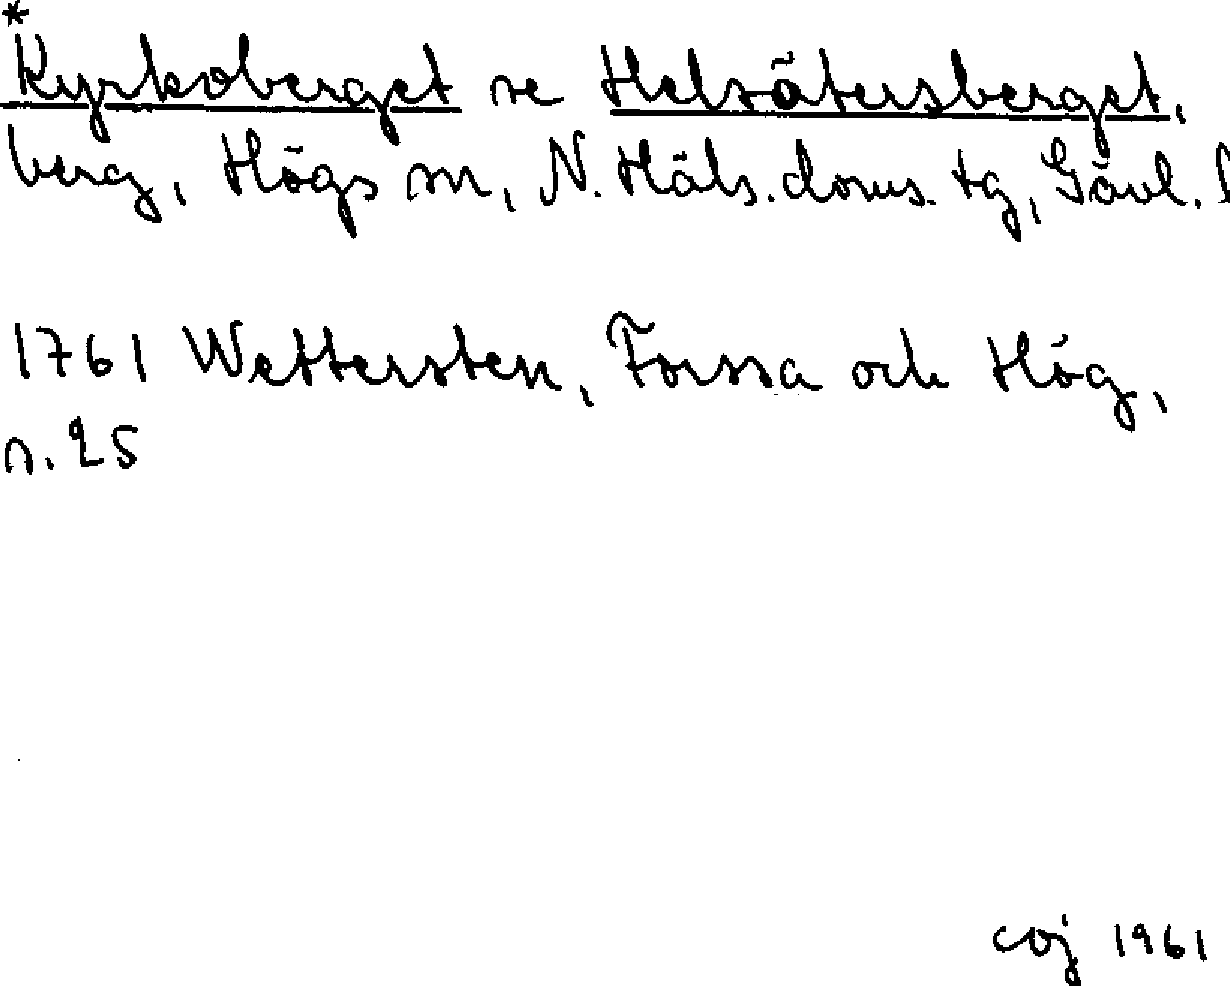 *
Kyrkoberget se Helsätersberget,
berg, Högs sn, N. Häls. doms. tg, Gävl. l
1761 Wettersten, Forssa och Hög,
s. 25
coj 1961